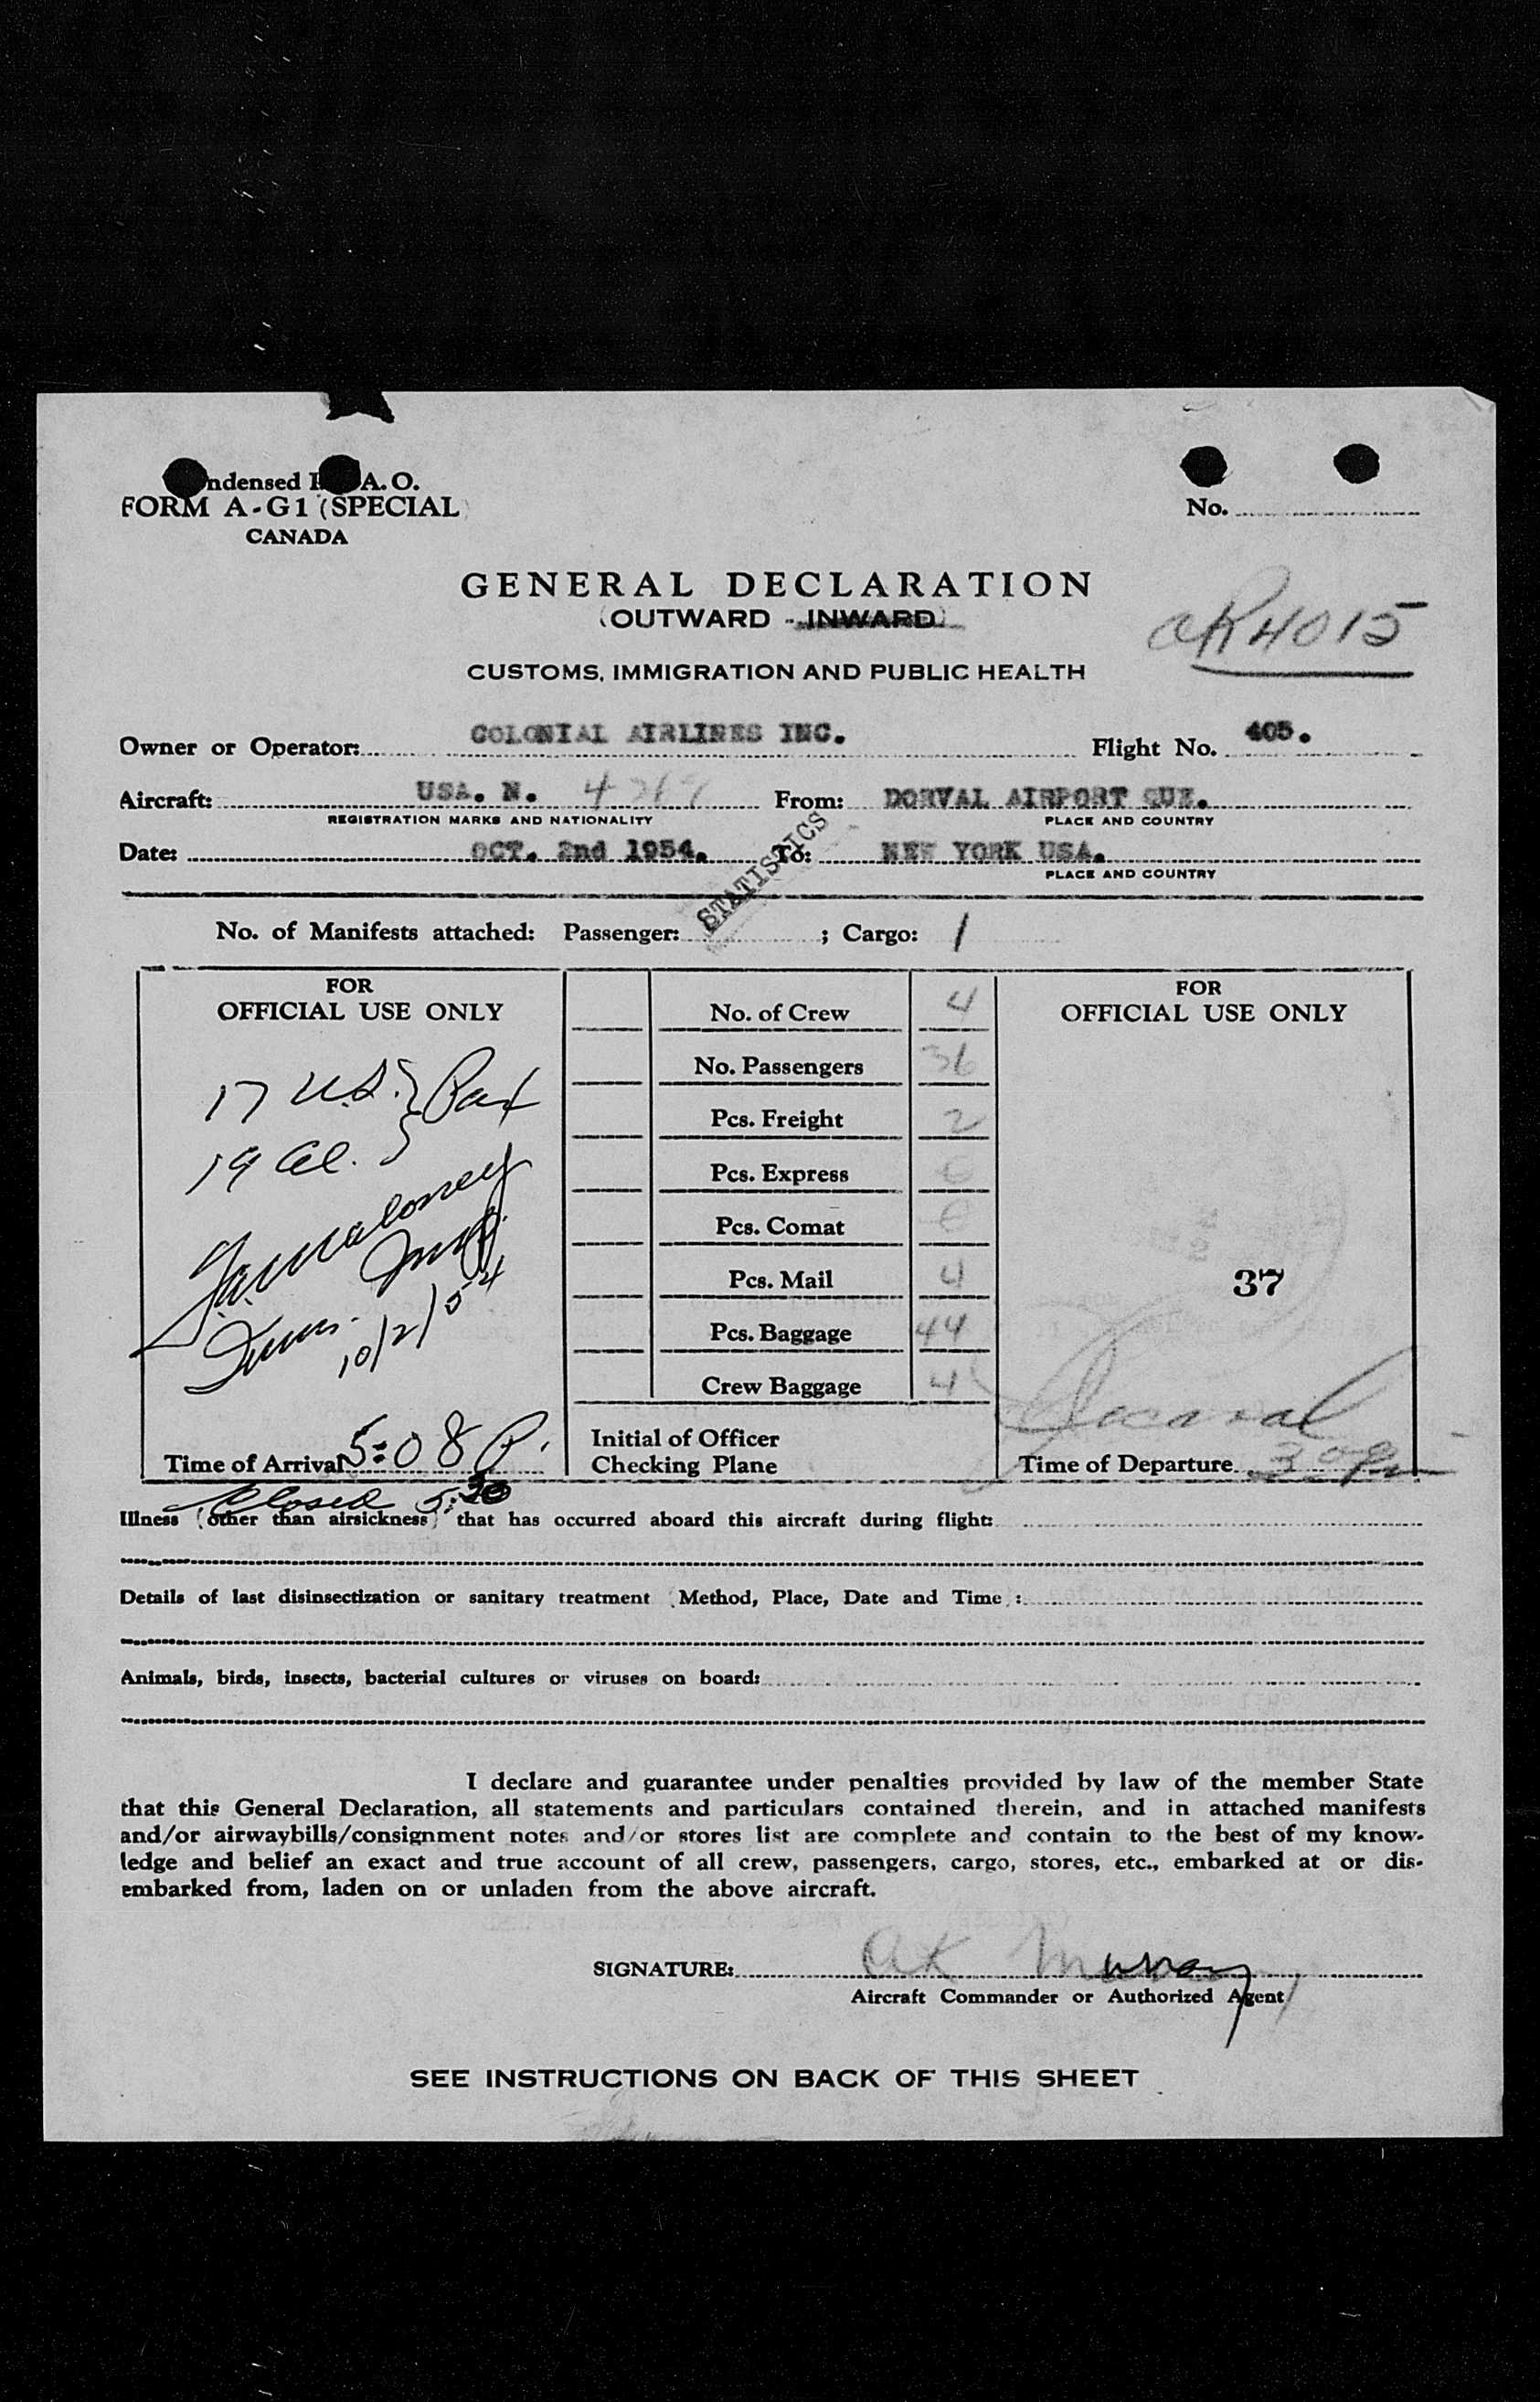 ndensed I A. O.
FORM A-G1 (SPECIAL)
CANADA
No.
GENERAL DECLARATION
(OUTWARD - INWARD)
4015
CUSTOMS, IMMIGRATION AND PUBLIC HEALTH
Owner or Operator: COLONIAL AIRLINES INC. Flight No. 405.
Aircraft: USA. N. From: DORVAL AIRPORT QUE.
REGISTRATION MARKS AND NATIONALITY PLACE AND COUNTRY
Date: OCT. 2nd 1954. To: NEW YORK USA.
PLACE AND COUNTRY
STATISTICS
No. of Manifests attached: Passenger: ; Cargo: 1
FOR
OFFICIAL USE ONLY
17 U.S. } Pax
19 al.
10/2/54
Time of Arrival 5:08 P.
Closed 5:30
No. of Crew 4
No. Passengers 36
Pcs. Freight 2
Pcs. Express
Pcs. Comat
Pcs. Mail 4
Pcs. Baggage 44
Crew Baggage 4
Initial of Officer
Checking Plane
FOR
OFFICIAL USE ONLY
37
Time of Departure
Illness (other than airsickness) that has occurred aboard this aircraft during flight:
Details of last disinsectization or sanitary treatment (Method, Place, Date and Time):
Animals, birds, insects, bacterial cultures or viruses on board:
I declare and guarantee under penalties provided by law of the member State
that this General Declaration, all statements and particulars contained therein, and in attached manifests
and/or airwaybills/consignment notes and/or stores list are complete and contain to the best of my know-
ledge and belief an exact and true account of all crew, passengers, cargo, stores, etc., embarked at or dis-
embarked from, laden on or unladen from the above aircraft.
SIGNATURE: AK Murray
Aircraft Commander or Authorized Agent
SEE INSTRUCTIONS ON BACK OF THIS SHEET